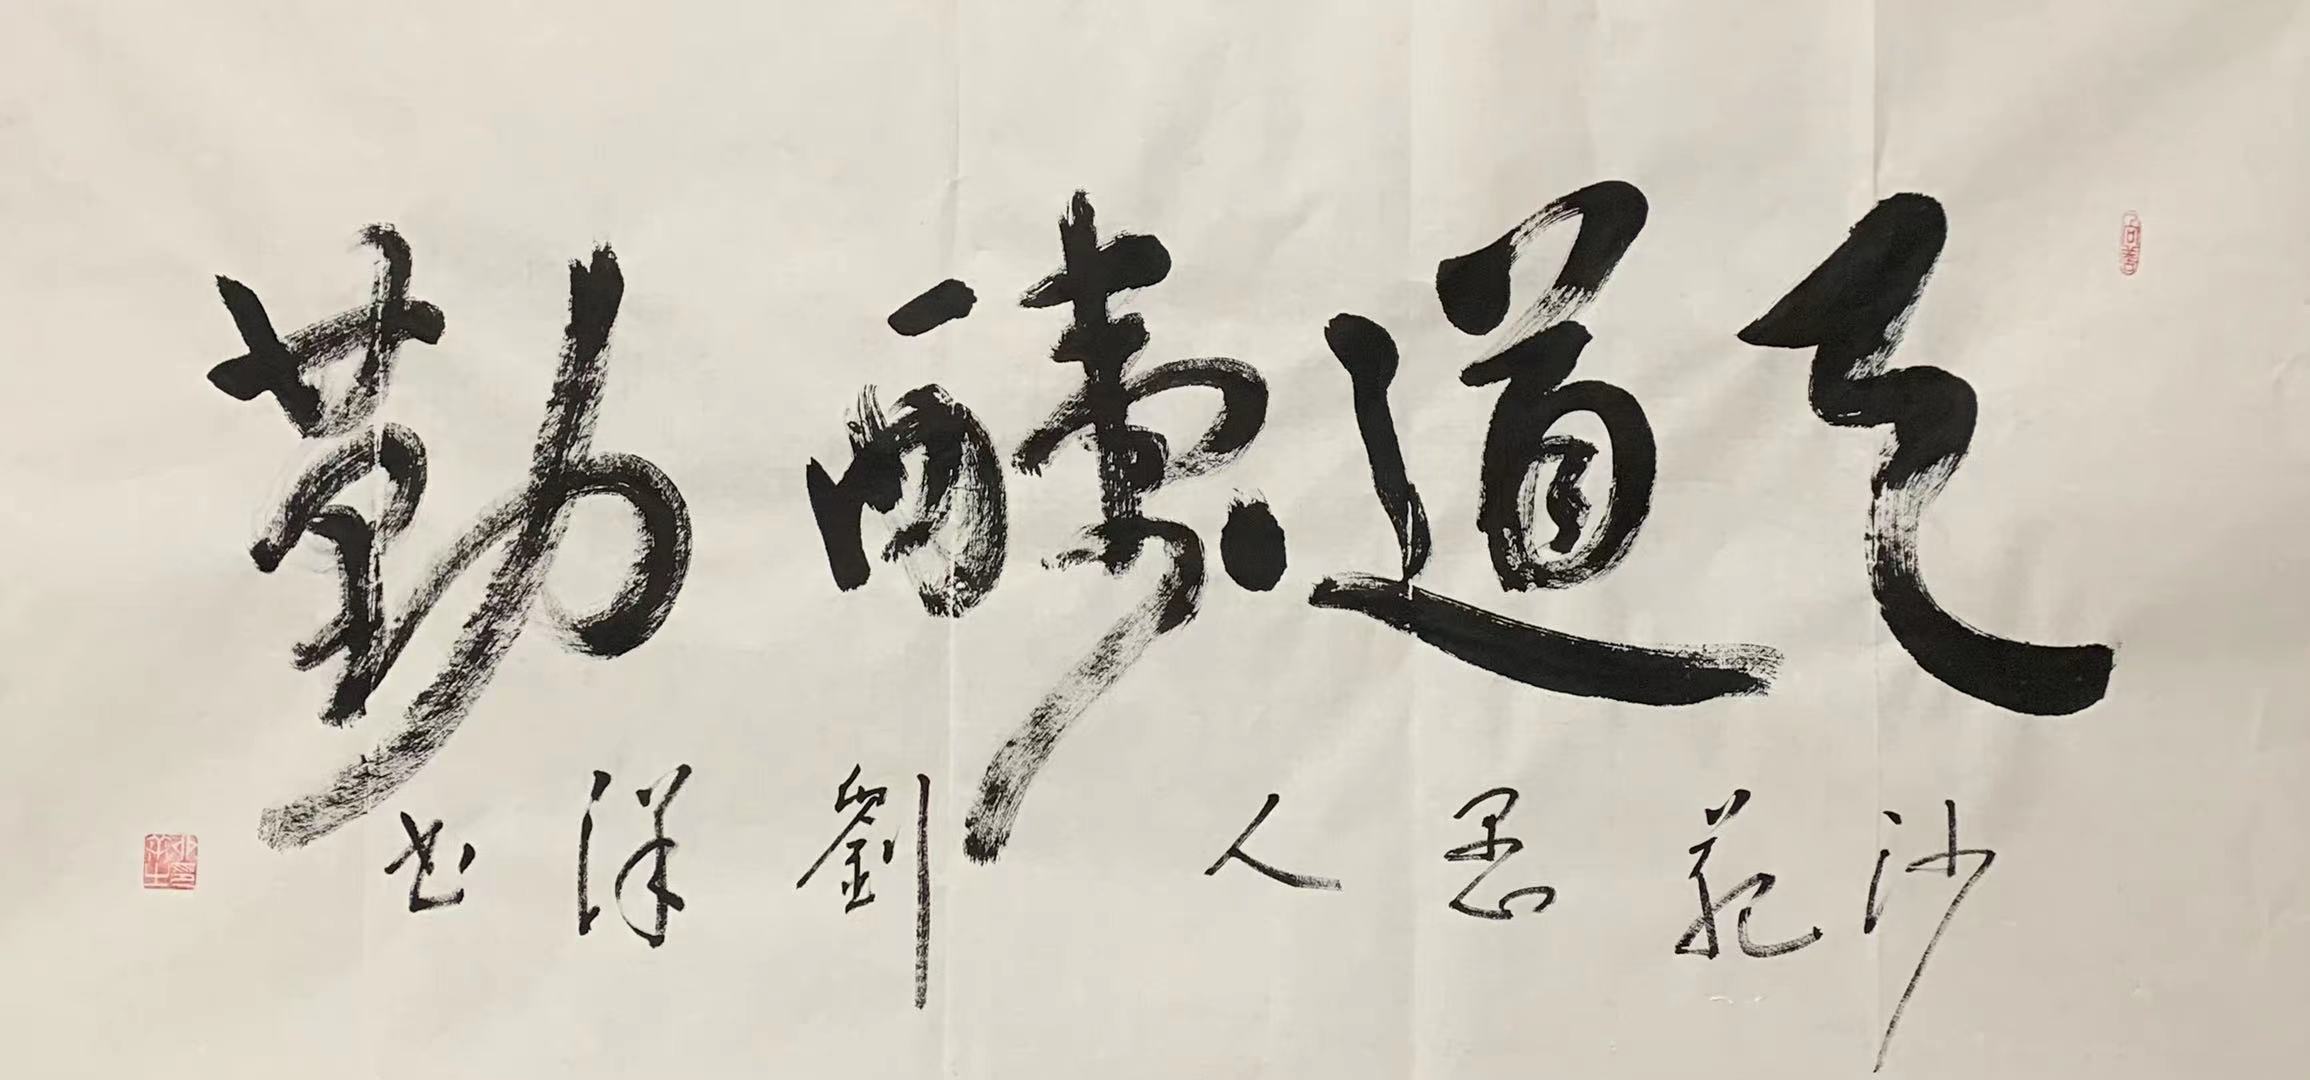 天道醻勤
沙苑愚人 劉洋書